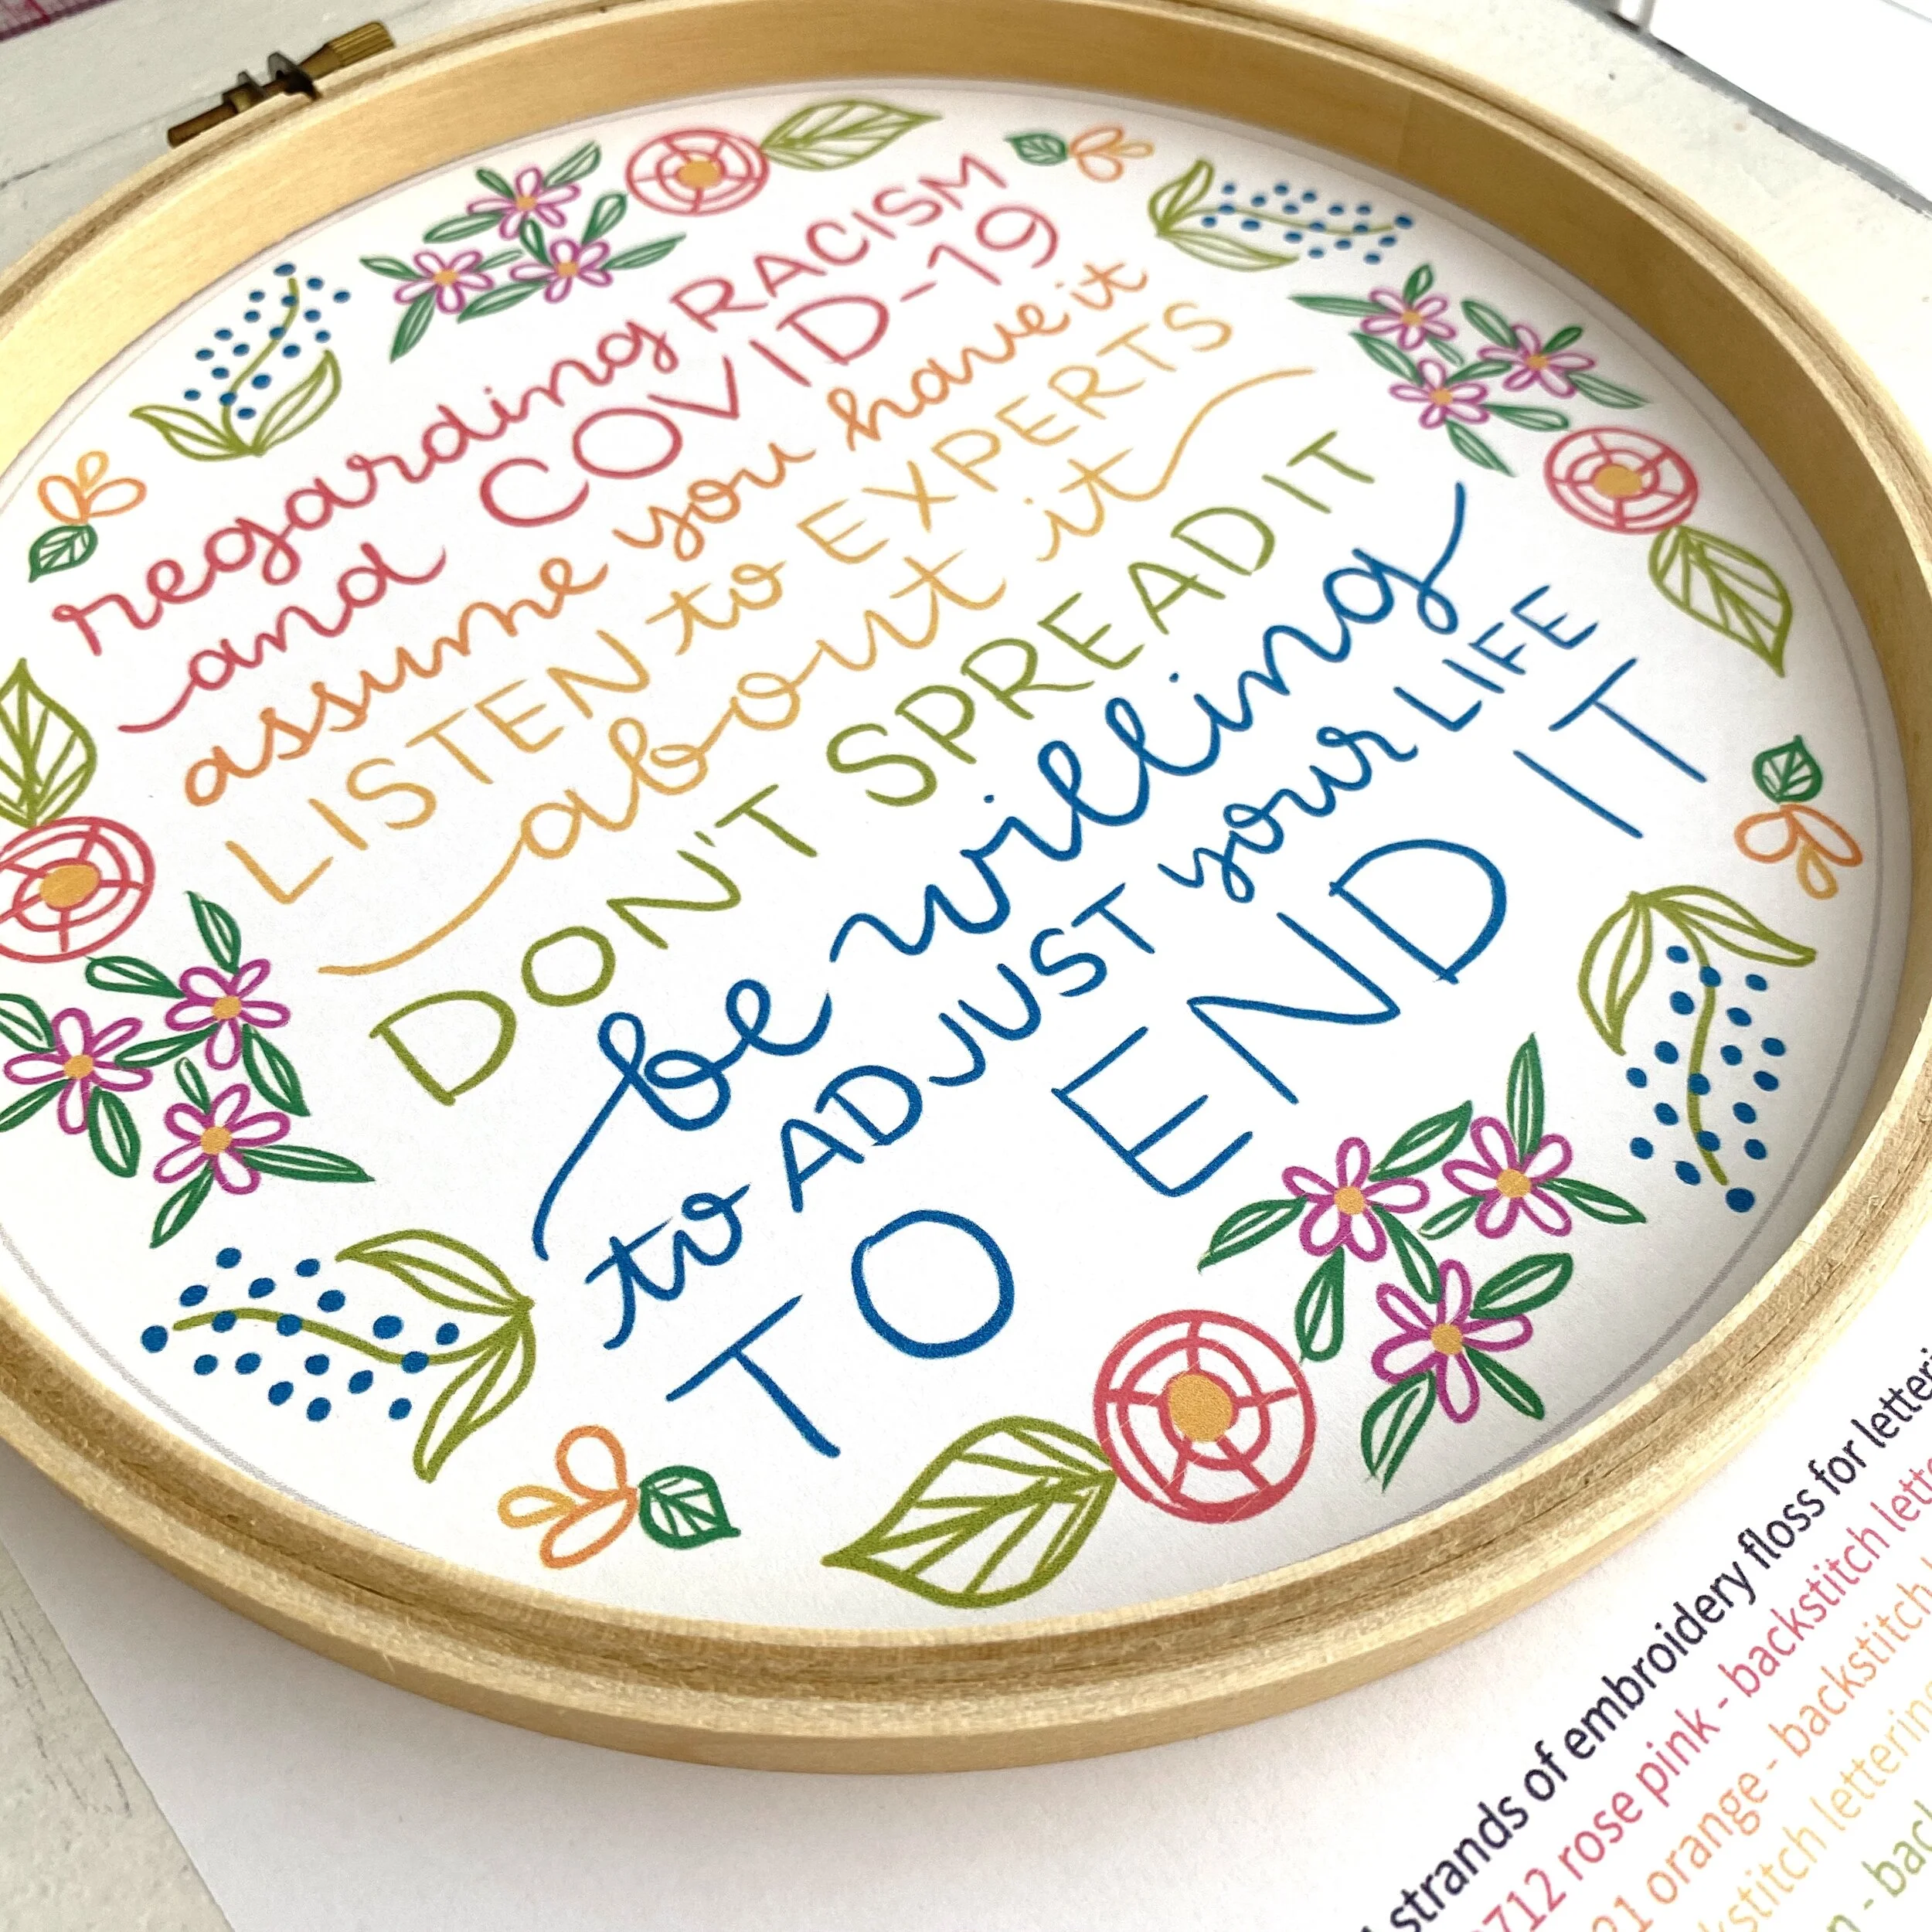 regarding RACISM
and COVID-19
assume you have it
LISTEN to EXPERTS
about it
DON'T SPREAD IT
be willing
to ADJUST your LIFE
TO END IT
strands of embroidery floss for
712 rose pink - backstitch
21 orange - backstitch
lettering